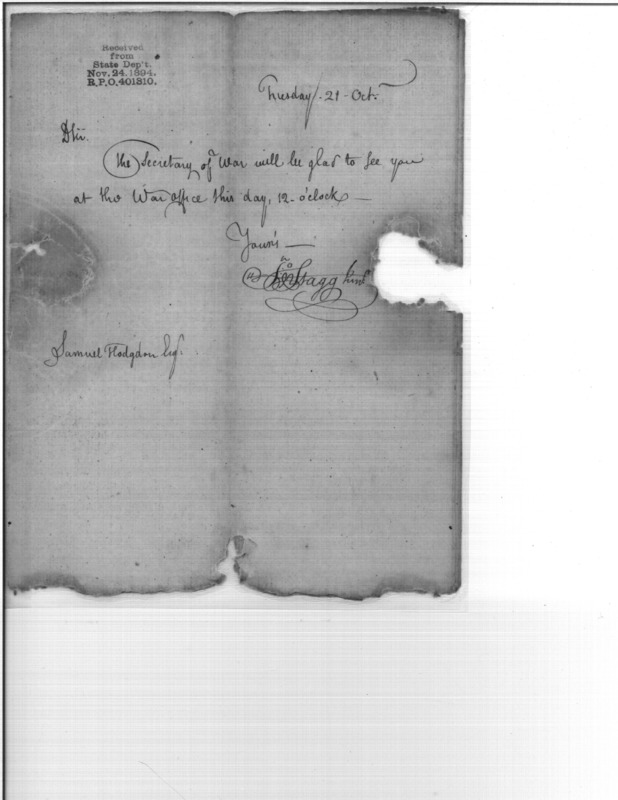 Received
from
State Dep't.
Nov. 24. 1894.
R.P.O. 401310.
Tuesday. 21 - Oct.
DSir.
The Secretary of War will be glad to see you
at the War office this day, 12 - o'clock —
Yours —
Stagg
Samuel Hodgdon Esqr.